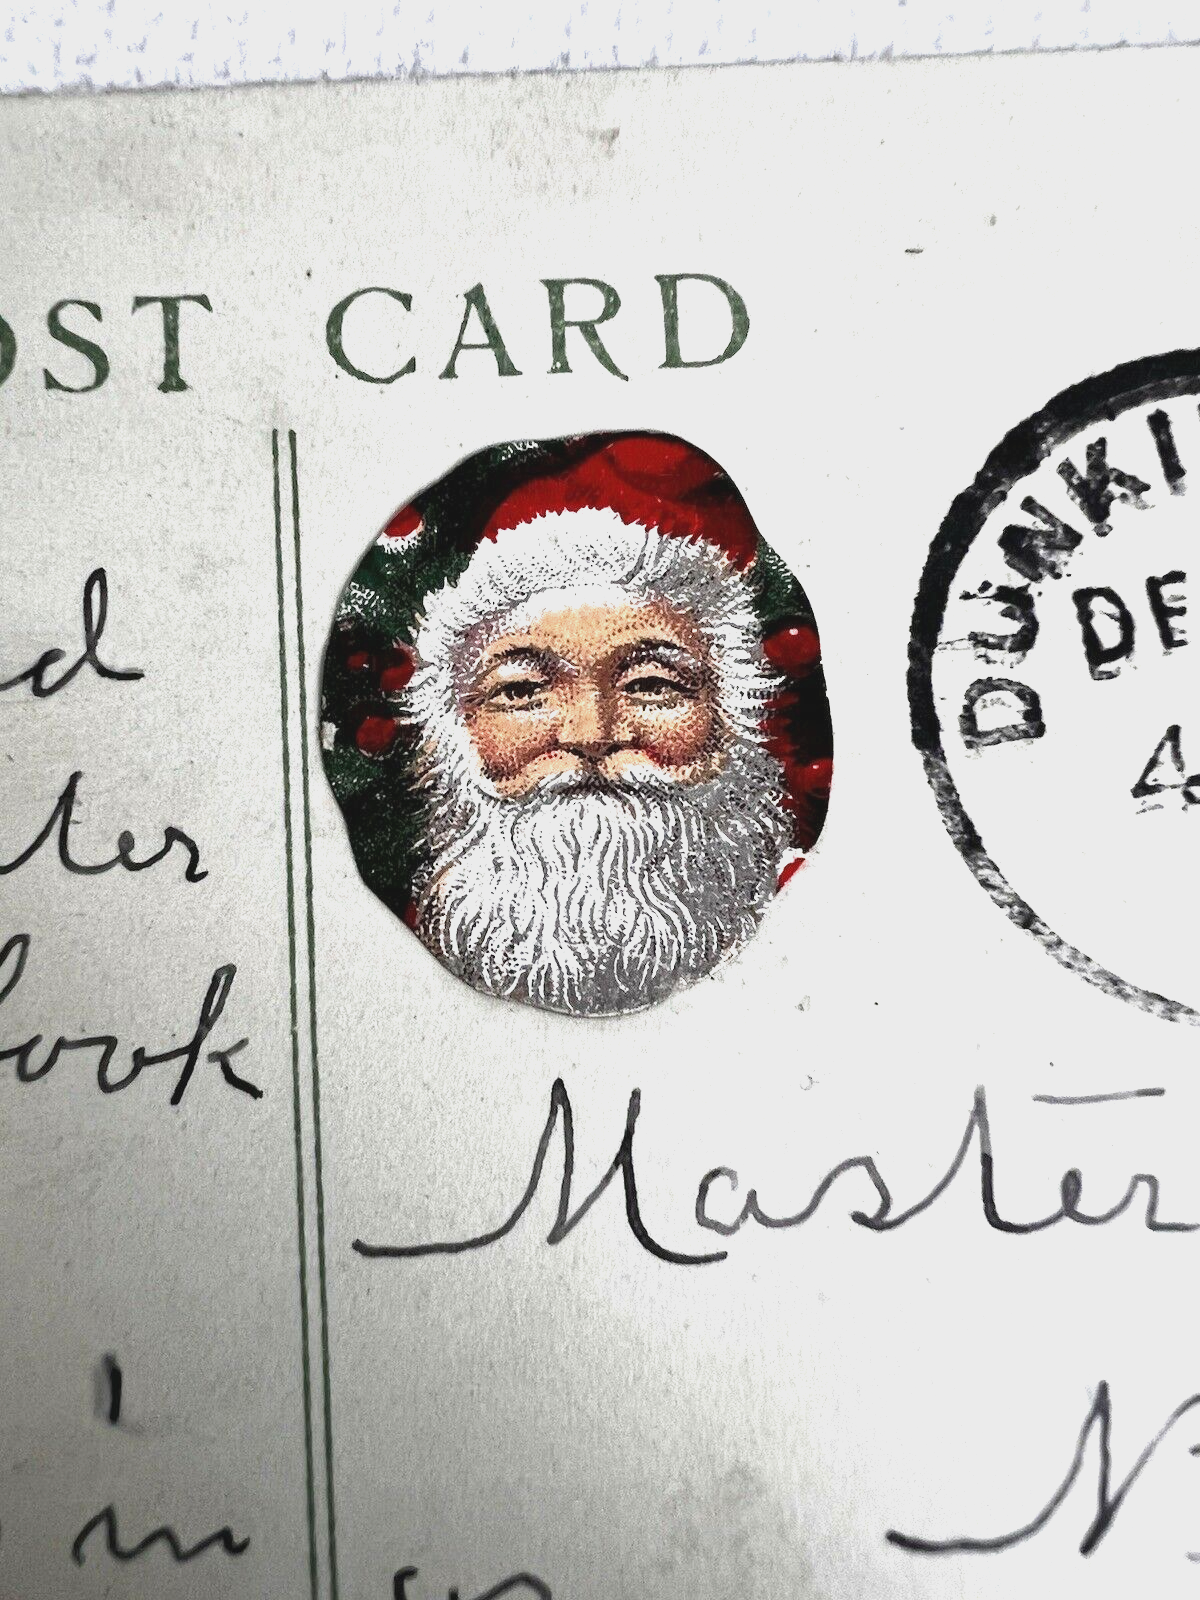 OST CARD
DUNKI
DE
4
d
ter
book
Master
N
m